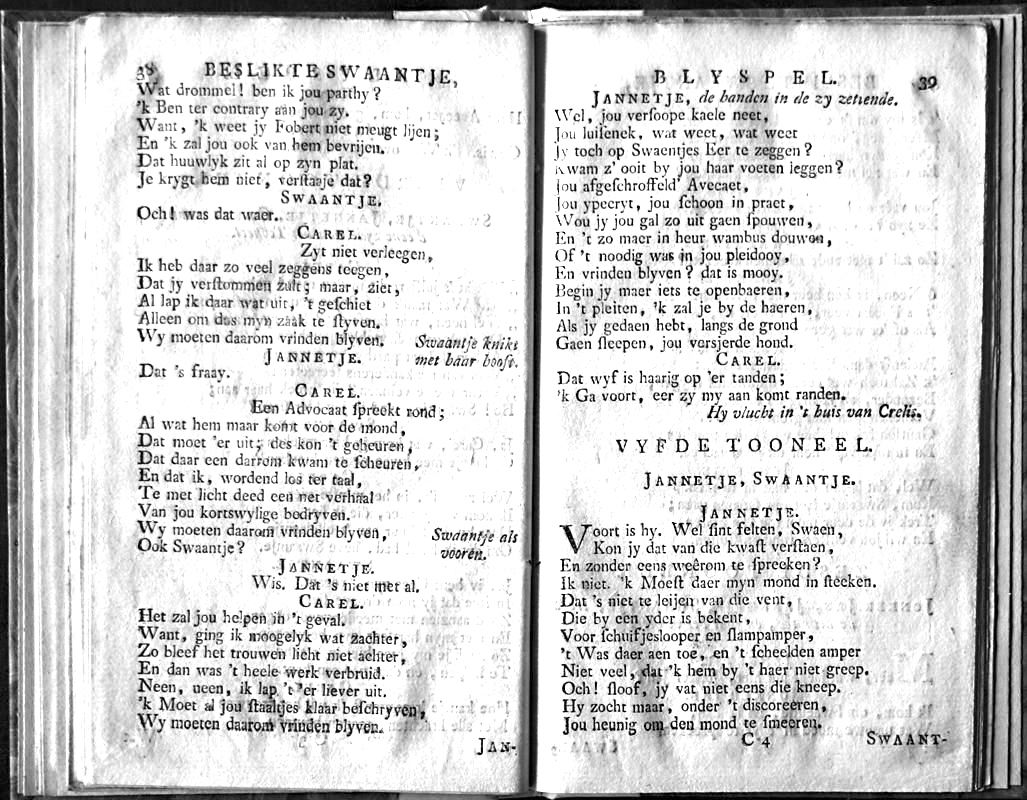 38 BESLIKTE SWAANTJE,
Wat drommel! ben ik jou parthy?
'k Ben ter contrary aan jou zy.
Want, 'k weet jy Fobert niet meugt lijen;
En 'k zal jou ook van hem bevrijen.
Dat huuwlyk zit al op zyn plat.
Je krygt hem niet, verstaaje dat?
SWAANTJE.
Och! was dat waer.
CAREL.
Zyt niet verleegen,
Ik heb daar zo veel zeggens teegen,
Dat jy verstommen zult; maar, ziet,
Al lap ik daar wat uit, 't geschiet
Alleen om das myn zaak te styven.
Wy moeten daarom vrinden blyven. Swaantje knikt
JANNETJE. met haar hooft.
Dat 's fraay.
CAREL.
Een Advocaat spreekt rond;
Al wat hem maar komt voor de mond,
Dat moet 'er uit; des kon 't gebeuren,
Dat daar een darrom kwam te scheuren,
En dat ik, wordend los ter taal,
Te met licht deed een net verhaal
Van jou kortswylige bedryven.
Wy moeten daarom vrinden blyven, Swaantje als
Ook Swaantje? vooren.
JANNETJE.
Wis. Dat 's niet met al.
CAREL.
Het zal jou helpen in 't geval.
Want, ging ik moogelyk wat zachter,
Zo bleef het trouwen licht niet achter,
En dan was 't heele werk verbruid.
Neen, neen, ik lap 't 'er liever uit.
'k Moet al jou staaltjes klaar beschryven,
Wy moeten daarom vrinden blyven.
JAN-
BLYSPEL. 39
JANNETJE, de handen in de zy zettende.
Wel, jou versoope kaele neet,
Jou luisenek, wat weet, wat weet
Jy toch op Swaentjes Eer te zeggen?
Kwam z' ooit by jou haar voeten leggen?
Jou afgeschroffeld' Avecaet,
Jou ypecryt, jou schoon in praet,
Wou jy jou gal zo uit gaen spouwen,
En 't zo maer in heur wambus douwen,
Of 't noodig was in jou pleidooy,
En vrinden blyven? dat is mooy.
Begin jy maer iets te openbaeren,
In 't pleiten, 'k zal je by de haeren,
Als jy gedaen hebt, langs de grond
Gaen sleepen, jou versjerde hond.
CAREL.
Dat wyf is haarig op 'er tanden;
'k Ga voort, eer zy my aan komt randen.
Hy vlucht in 't huis van Crelis.
VYFDE TOONEEL.
JANNETJE, SWAANTJE.
JANNETJE.
Voort is hy. Wel sint felten, Swaen,
Kon jy dat van die kwast verstaen,
En zonder eens weêrom te spreeken?
Ik niet. 'k Moest daer myn mond in steeken.
Dat 's niet te leijen van die vent,
Die by een yder is bekent,
Voor schuifjeslooper en slampamper,
't Was daer aen toe, en 't scheelden amper
Niet veel, dat 'k hem by 't haer niet greep.
Och! sloof, jy vat niet eens die kneep.
Hy zocht maar, onder 't discoreeren,
Jou heunig om den mond te smeeren.
C 4 SWAANT-